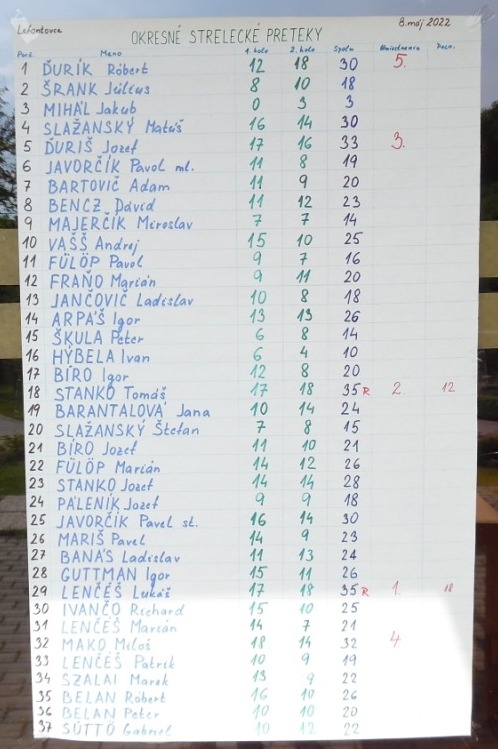 Lefantovce 8. máj 2022
OKRESNÉ STRELECKÉ PRETEKY
Por.č. Meno 1. kolo 2. kolo Spolu Umiestnenie Pozn.
1 ĎURÍK Róbert 12 18 30 5.
2 ŠRANK Július 8 10 18
3 MIHÁL Jakub 0 3 3
4 SLAŽANSKÝ Matúš 16 14 30
5 ĎURIŠ Jozef 17 16 33 3.
6 JAVORČÍK Pavol ml. 11 8 19
7 BARTOVIČ Adam 11 9 20
8 BENCZ Dávid 11 12 23
9 MAJERČÍK Miroslav 7 7 14
10 VAŠŠ Andrej 15 10 25
11 FÜLÖP Pavol 9 7 16
12 FRAŇO Marián 9 11 20
13 JANČOVIČ Ladislav 10 8 18
14 ARPÁŠ Igor 13 13 26
15 ŠKULA Peter 6 8 14
16 HÝBELA Ivan 6 4 10
17 BÍRO Igor 12 8 20
18 STANKO Tomáš 17 18 35 R 2. 12
19 BARANTALOVÁ Jana 10 14 24
20 SLAŽANSKÝ Štefan 7 8 15
21 BÍRO Jozef 11 10 21
22 FÜLÖP Marián 14 12 26
23 STANKO Jozef 14 14 28
24 PÁLENÍK Jozef 9 9 18
25 JAVORČÍK Pavel st. 16 14 30
26 MARIŠ Pavel 14 9 23
27 BANÁS Ladislav 11 13 24
28 GUTTMAN Igor 15 11 26
29 LENČÉŠ Lukáš 17 18 35 R 1. 18
30 IVANČO Richard 15 10 25
31 LENČÉŠ Marián 14 7 21
32 MAKO Miloš 18 14 32 4.
33 LENČÉŠ Patrik 10 9 19
34 SZALAI Marek 13 9 22
35 BELAN Róbert 16 10 26
36 BELAN Peter 10 10 20
37 SÜTTÖ Gabriel 10 12 22